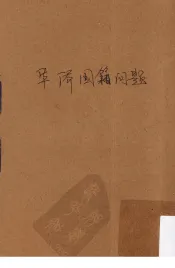 华侨国籍问题